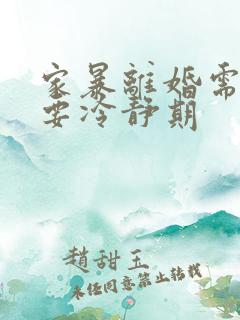 家暴離婚需
要冷靜期
趙甜玉
未经同意禁止转载